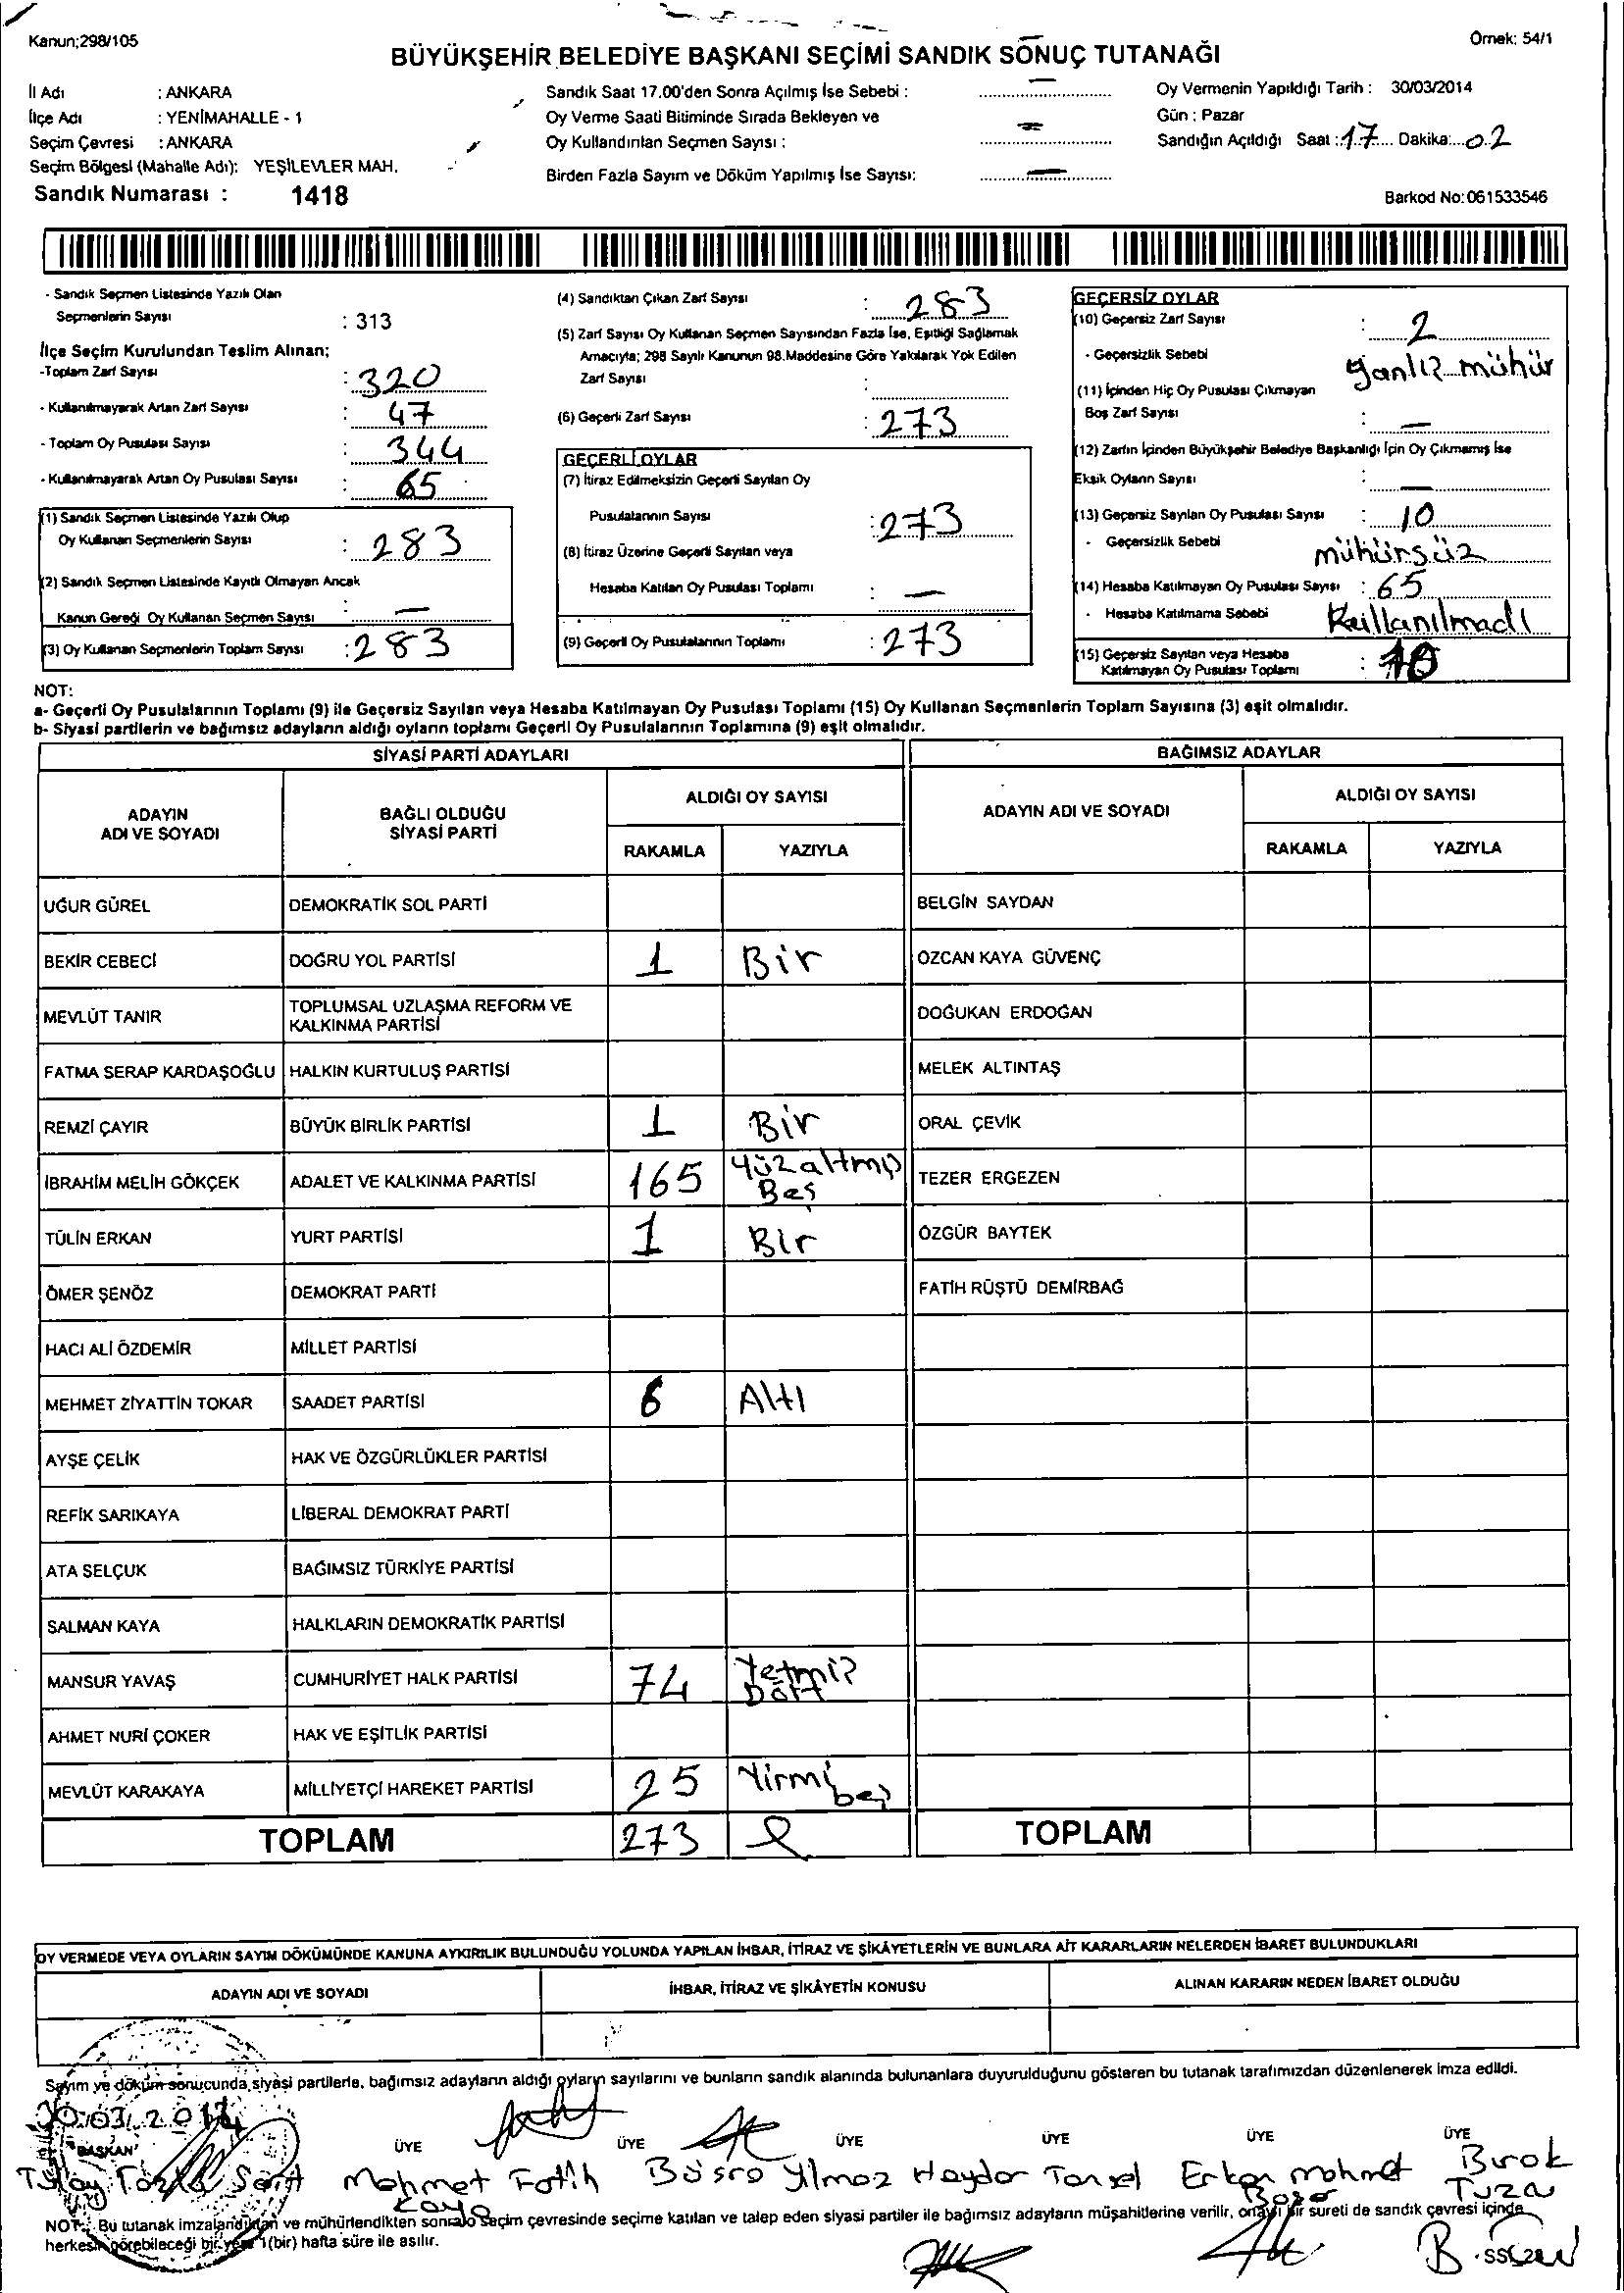 Kanun;298/105
Örnek: 54/1
BÜYÜKŞEHİR BELEDİYE BAŞKANI SEÇİMİ SANDIK SONUÇ TUTANAĞI
İl Adı : ANKARA
İlçe Adı : YENİMAHALLE - 1
Seçim Çevresi : ANKARA
Seçim Bölgesi (Mahalle Adı): YEŞİLEVLER MAH.
Sandık Numarası : 1418
Sandık Saat 17.00'den Sonra Açılmış İse Sebebi : —
Oy Verme Saati Bitiminde Sırada Bekleyen ve
Oy Kullandırılan Seçmen Sayısı : —
Birden Fazla Sayım ve Döküm Yapılmış İse Sayısı: —
Oy Vermenin Yapıldığı Tarih : 30/03/2014
Gün : Pazar
Sandığın Açıldığı Saat : 17 Dakika: 02
Barkod No: 061533546
- Sandık Seçmen Listesinde Yazılı Olan
Seçmenlerin Sayısı : 313
İlçe Seçim Kurulundan Teslim Alınan;
-Toplam Zarf Sayısı : 320
- Kullanılmayarak Artan Zarf Sayısı : 47
- Toplam Oy Pusulası Sayısı : 344
- Kullanılmayarak Artan Oy Pusulası Sayısı : 65
(1) Sandık Seçmen Listesinde Yazılı Olup
Oy Kullanan Seçmenlerin Sayısı : 283
(2) Sandık Seçmen Listesinde Kayıtlı Olmayan Ancak
Kanun Gereği Oy Kullanan Seçmen Sayısı : —
(3) Oy Kullanan Seçmenlerin Toplam Sayısı : 283
(4) Sandıktan Çıkan Zarf Sayısı : 283
(5) Zarf Sayısı Oy Kullanan Seçmen Sayısından Fazla İse, Eşitliği Sağlamak
Amacıyla; 298 Sayılı Kanunun 98.Maddesine Göre Yakılarak Yok Edilen
Zarf Sayısı :
(6) Geçerli Zarf Sayısı : 273
GEÇERLİ OYLAR
(7) İtiraz Edilmeksizin Geçerli Sayılan Oy
Pusulalarının Sayısı : 273
(8) İtiraz Üzerine Geçerli Sayılan veya
Hesaba Katılan Oy Pusulası Toplamı : —
(9) Geçerli Oy Pusulalarının Toplamı : 273
GEÇERSİZ OYLAR
(10) Geçersiz Zarf Sayısı : 2
- Geçersizlik Sebebi yanlış mühür
(11) İçinden Hiç Oy Pusulası Çıkmayan
Boş Zarf Sayısı : —
(12) Zarfın İçinden Büyükşehir Belediye Başkanlığı İçin Oy Çıkmamış İse
Eksik Oyların Sayısı : —
(13) Geçersiz Sayılan Oy Pusulası Sayısı : 10
- Geçersizlik Sebebi mühürsüz
(14) Hesaba Katılmayan Oy Pusulası Sayısı : 65
- Hesaba Katılmama Sebebi Kullanılmadı
(15) Geçersiz Sayılan veya Hesaba
Katılmayan Oy Pusulası Toplamı : 10
NOT:
a- Geçerli Oy Pusulalarının Toplamı (9) ile Geçersiz Sayılan veya Hesaba Katılmayan Oy Pusulası Toplamı (15) Oy Kullanan Seçmenlerin Toplam Sayısına (3) eşit olmalıdır.
b- Siyasi partilerin ve bağımsız adayların aldığı oyların toplamı Geçerli Oy Pusulalarının Toplamına (9) eşit olmalıdır.
SİYASİ PARTİ ADAYLARI
BAĞIMSIZ ADAYLAR
ADAYIN ADI VE SOYADI
BAĞLI OLDUĞU SİYASİ PARTİ
ALDIĞI OY SAYISI
RAKAMLA YAZIYLA
ADAYIN ADI VE SOYADI
ALDIĞI OY SAYISI
RAKAMLA YAZIYLA
UĞUR GÜREL DEMOKRATİK SOL PARTİ BELGİN SAYDAN
BEKİR CEBECİ DOĞRU YOL PARTİSİ 1 Bir ÖZCAN KAYA GÜVENÇ
MEVLÜT TANIR TOPLUMSAL UZLAŞMA REFORM VE KALKINMA PARTİSİ DOĞUKAN ERDOĞAN
FATMA SERAP KARDAŞOĞLU HALKIN KURTULUŞ PARTİSİ MELEK ALTINTAŞ
REMZİ ÇAYIR BÜYÜK BİRLİK PARTİSİ 1 Bir ORAL ÇEVİK
İBRAHİM MELİH GÖKÇEK ADALET VE KALKINMA PARTİSİ 165 Yüzaltmış Beş TEZER ERGEZEN
TÜLİN ERKAN YURT PARTİSİ 1 Bir ÖZGÜR BAYTEK
ÖMER ŞENÖZ DEMOKRAT PARTİ FATİH RÜŞTÜ DEMİRBAĞ
HACI ALİ ÖZDEMİR MİLLET PARTİSİ
MEHMET ZİYATTİN TOKAR SAADET PARTİSİ 6 Altı
AYŞE ÇELİK HAK VE ÖZGÜRLÜKLER PARTİSİ
REFİK SARIKAYA LİBERAL DEMOKRAT PARTİ
ATA SELÇUK BAĞIMSIZ TÜRKİYE PARTİSİ
SALMAN KAYA HALKLARIN DEMOKRATİK PARTİSİ
MANSUR YAVAŞ CUMHURİYET HALK PARTİSİ 74 Yetmiş Dört
AHMET NURİ ÇOKER HAK VE EŞİTLİK PARTİSİ
MEVLÜT KARAKAYA MİLLİYETÇİ HAREKET PARTİSİ 25 Yirmi beş
TOPLAM 273 TOPLAM
OY VERMEDE VEYA OYLARIN SAYIM DÖKÜMÜNDE KANUNA AYKIRILIK BULUNDUĞU YOLUNDA YAPILAN İHBAR, İTİRAZ VE ŞİKÂYETLERİN VE BUNLARA AİT KARARLARIN NELERDEN İBARET BULUNDUKLARI
ADAYIN ADI VE SOYADI İHBAR, İTİRAZ VE ŞİKÂYETİN KONUSU ALINAN KARARIN NEDEN İBARET OLDUĞU
Sayım ve döküm sonucunda, siyasi partilerle, bağımsız adayların aldığı oyların sayılarını ve bunların sandık alanında bulunanlara duyurulduğunu gösteren bu tutanak tarafımızdan düzenlenerek imza edildi.
30.03.2014
BAŞKAN ÜYE ÜYE ÜYE ÜYE ÜYE ÜYE
Mehmet Fatih Kaya Büşra Yılmaz Haydar Erkan Mehmet Burak
NOT: Bu tutanak imzalandıktan ve mühürlendikten sonra o seçim çevresinde seçime katılan ve talep eden siyasi partiler ile bağımsız adayların müşahitlerine verilir, onaylı bir sureti de sandık çevresi içinde
herkesin görebileceği bir yere 1(bir) hafta süre ile asılır.